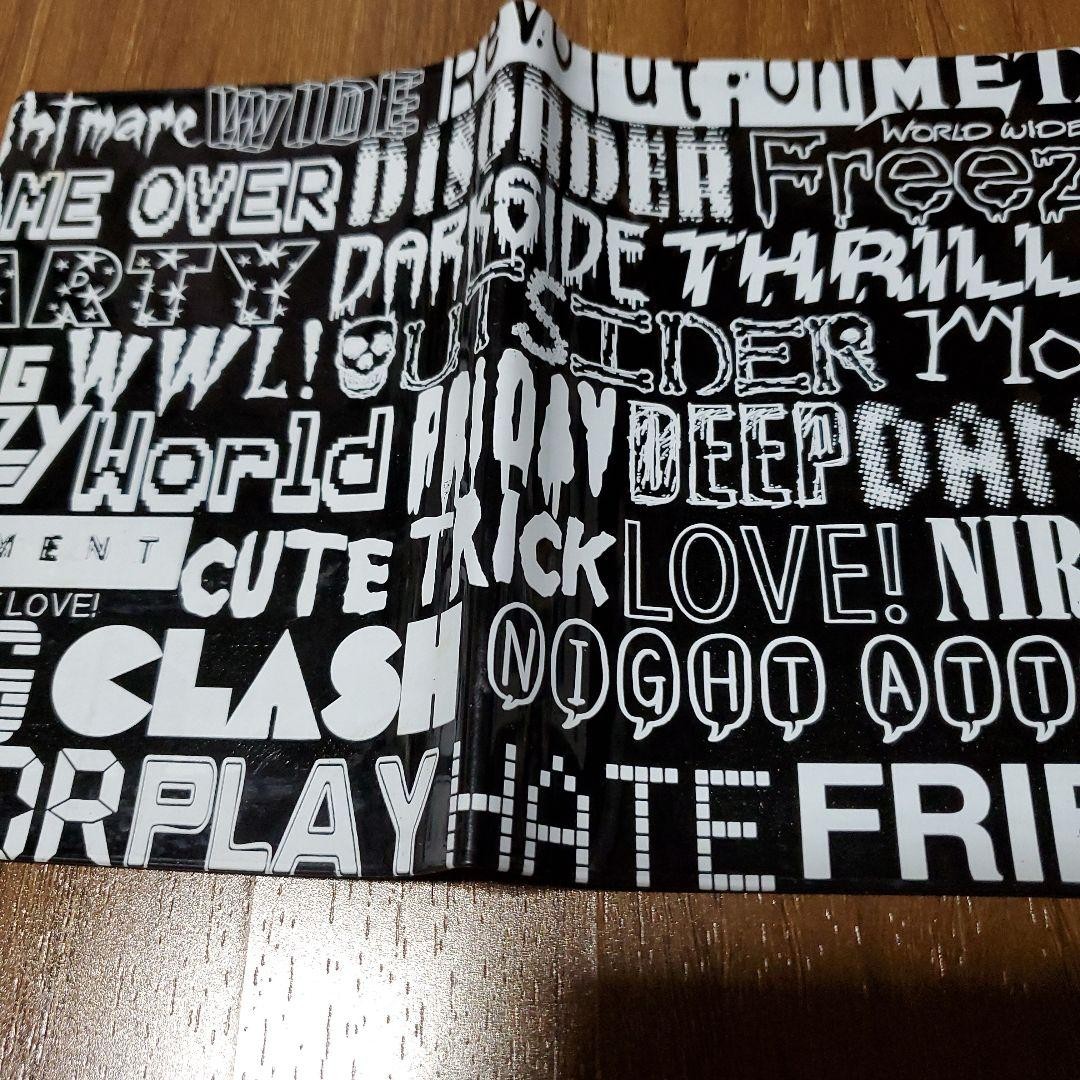 htmare WIDE Beautiful MET
WORLD WIDE
ME OVER DISORDER Freez
ARTY DARKSIDE THRILL
G WWL! OUTSIDER Mo
ZY World DEEP DAM
MENT CUTE TRICK LOVE! NIR
LOVE!
CLASH NIGHT ATT
OR PLAY HATE FRIE